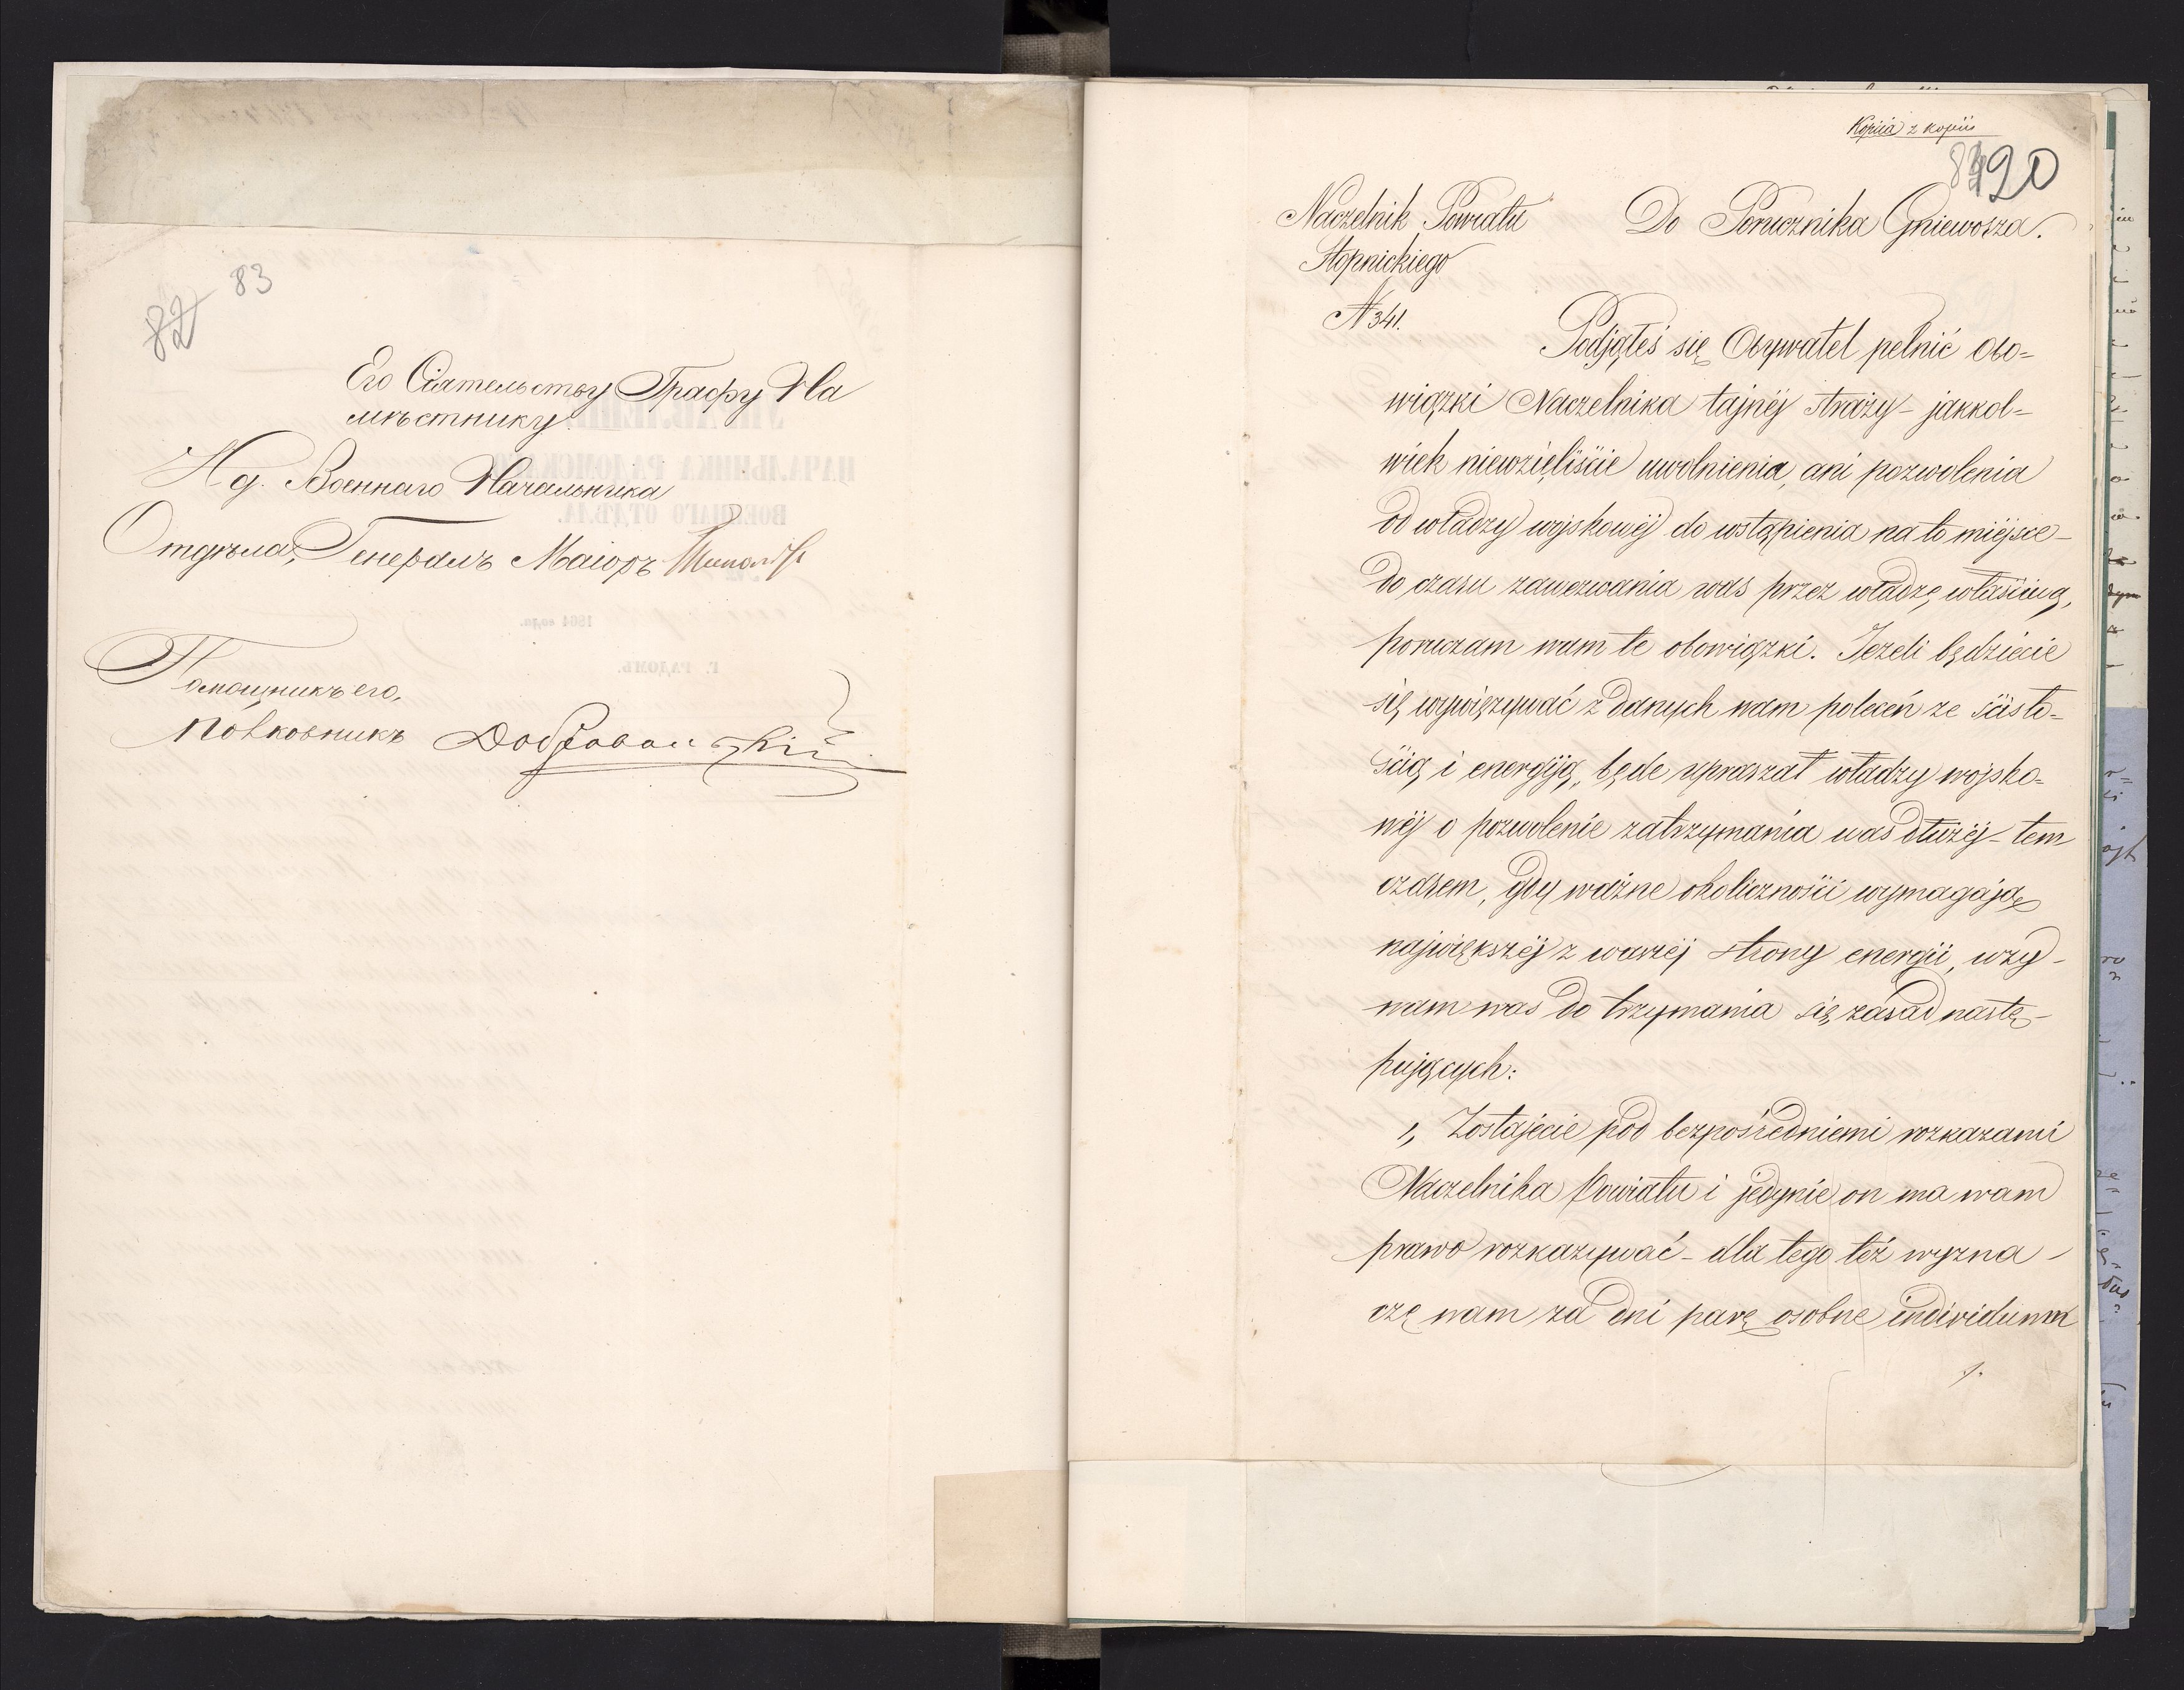 82 83
Его Сіятельству Графу На
мѣстнику.
И д. Военнаго Начальника
Отдѣла, Генералъ Маіоръ
Помощникъ его,
Полковникъ Добровольскій
Kopiia z kopii
120
Naczelnik Powiatu
Stopnickiego
N 341.
Do Porucznika Gniewosza.
Podjąłeś się Obywatel pełnić obo=
wiązki Naczelnika tajnéj straży – jakkol=
wiek niewzięliście uwolnienia, ani pozwolenia
od władzy wojskowéj do wstąpienia na to miéjsce –
do czasu zawezwania was przez władzę właściwą,
poruczam wam te obowiązki. Jeżeli będziecie
się wywięzywać z danych wam poleceń ze ścisło=
ścią i energiją, będe upraszał władzy wojsko=
wéj o pozwolenie zatrzymania was dłużéj – tem
czasem, gdy ważne okoliczności wymagają
największéj z waszéj strony energii, wzy-
wam was do trzymania się zasad nastę-
pujących:
1, Zostajecie pod bezpośredniemi rozkazami
Naczelnika Powiatu i jedynie on ma wam
prawo rozkazywać – dla tego też wyzna-
czę wam za dni parę osobne individuum